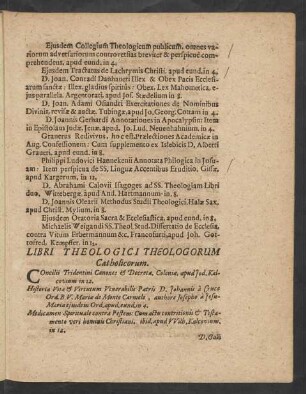 Ejusdem Collegium Theologicum publicum, omnes va-
riorum adversariorum controversias breviter & perspicuè com-
prehendens, apud eund. in 4.
Ejusdem Tractatus de Lachrymis Christi, apud eund. in 4.
D. Joan. Conradi Danhaueri Illex & Obex Pacis Ecclesi-
arum sancta: Illex, gladius spiritus: Obex Lex Mahometica, e-
jus perallela. Argentorati, apud Jos. Stædelium in 8.
D. Joan. Adami Osiandri Exercitationes de Nominibus
Divinis, revisæ & auctæ, Tubingæ, apud Jo. Georg. Cottam in 4.
D. Joannis Gerhardi Annotationes in Apocalypsin: Item
in Epistolam Judæ. Jenæ, apud Jo. Lud. Neuenhahnium, in 4.
Grauerus Redivivus, hoc est, Prælectiones Academicæ in
Aug. Confessionem: Cum supplemento ex Islebicis D. Alberti
Graueri, apud eund. in 8.
Philippi Ludovici Hannekenii Annotata Philogica in Josu-
am: Item perspicua de SS. Linguæ Accentibus Eruditio. Gissæ,
apud Kargerum, in 12.
D. Abrahami Calovii Isagoges ad SS. Theologiam Libri
duo, Wittebergæ, apud And. Hartmannum, in 8.
D. Joannis Olearii Methodus Studii Theologici, Halæ Sax.
apud Christ. Mylium, in 8.
Ejusdem Oratoria Sacra & Ecclesiastica, apud eund. in 8.
Michaelis Weigandi SS. Theol. Stud. Dissertatio de Ecclesia,
contra Vitum Erbermannum &c. Francofurti, apud Joh. Got-
tofred. Kempffer. in 12.
LIBRI THEOLOGICI THEOLOGORUM
Catholicorum.
Concilii Tridentini Canones & Decreta, Coloniæ, apud Jod. Kal-
covium in 12.
Historia Vitæ & Virtutum Venerabilis Patris D. Johannis à Cruce
Ord. B. V. Mariæ de Monte Carmelo, authore Josepho à Jesu-
Maria ejusdem Ord. apud, eund. in 4.
Medicamen Spirituale contra Pestem: Cum actu contritionis & Testa-
mento veri hominis Christiani, ibid. apud VVilh. Kalcovium,
in 12.